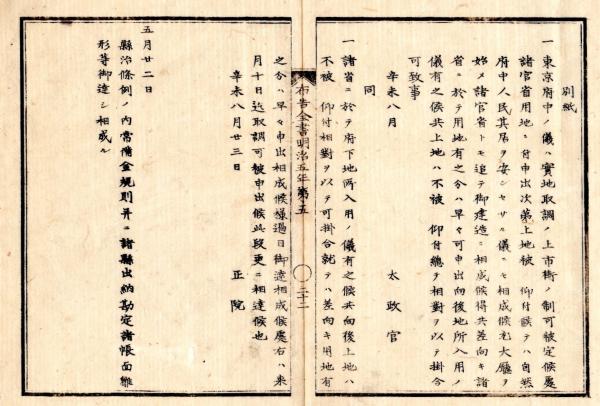 別紙
一東京府中ノ儀ハ實地取調ノ上市街ノ制可被定候處
諸官省用地ニ付申出次第上地被 仰付候テハ自然
府中人民其居ヲ安シセサル儀ニモ相成候尤大廳ヲ
始メ諸官省トモ追テ御建造ニ相成候得共差向キ諸
省ニ於テ用地有之分ハ早々可申出向後地所入用ノ
儀有之候共上地ハ不被 仰付總テ相對ヲ以テ掛合
可致事
辛未八月 太政官
同
一諸省ニ於テ府下地所入用ノ儀有之候共向後上地ハ
不被 仰付相對ヲ以テ可掛合就テハ差向キ用地有
布告全書明治五年 第五
二十二
之分ハ早々申出相成候樣過日御達相成候處右ハ來
月十日迄取調可被申出候此段更ニ相達候也
辛未八月廿三日 正院
五月廿二日
縣治條例ノ內常備金規則幷ニ諸縣出納勘定諸帳面雛
形等御達シ相成ル